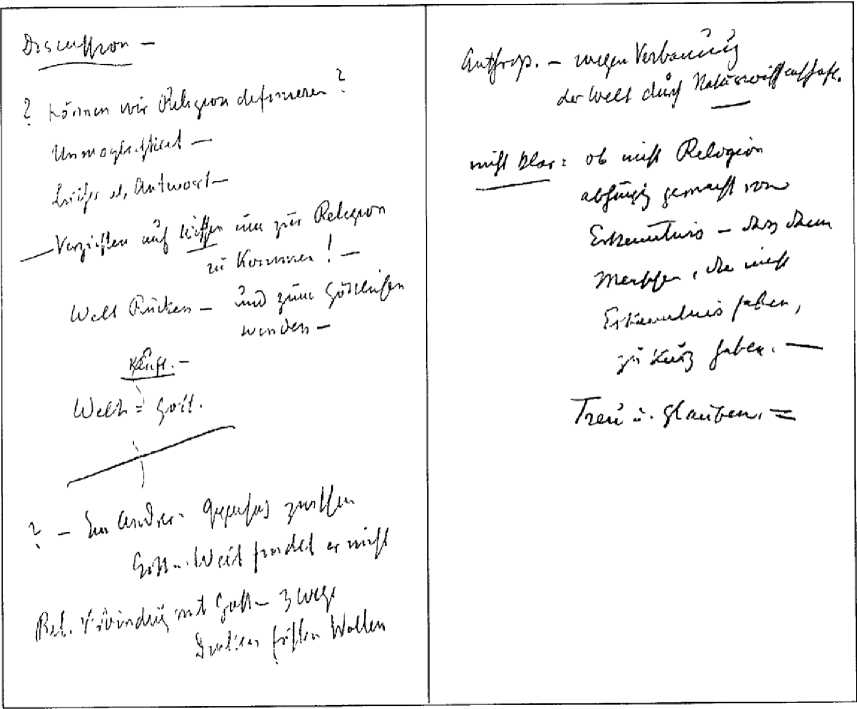 Discussion —
? Können wir Religion definieren?
Unmöglichkeit —
Antwort —
— Verzichten auf Wissen um zur Religion
zu Kommen! —
Welt Rücken — und zum Göttlichen
wenden —
Welt = Gott.
? — Ein Andrer: Gegensatz zwischen
Gott u. Welt findet er nicht
Rel. Verbindung mit Gott — 3 Wege
Denken fühlen Wollen
Anthrop. — wegen Verbauung
der Welt durch Naturwissenschaft.
nicht klar: ob nicht Religion
abhängig gemacht von
Erkenntnis — daß dann
Menschen, die nicht
Erkenntnis haben,
zu kurz haben. —
Treu u. Glauben. =